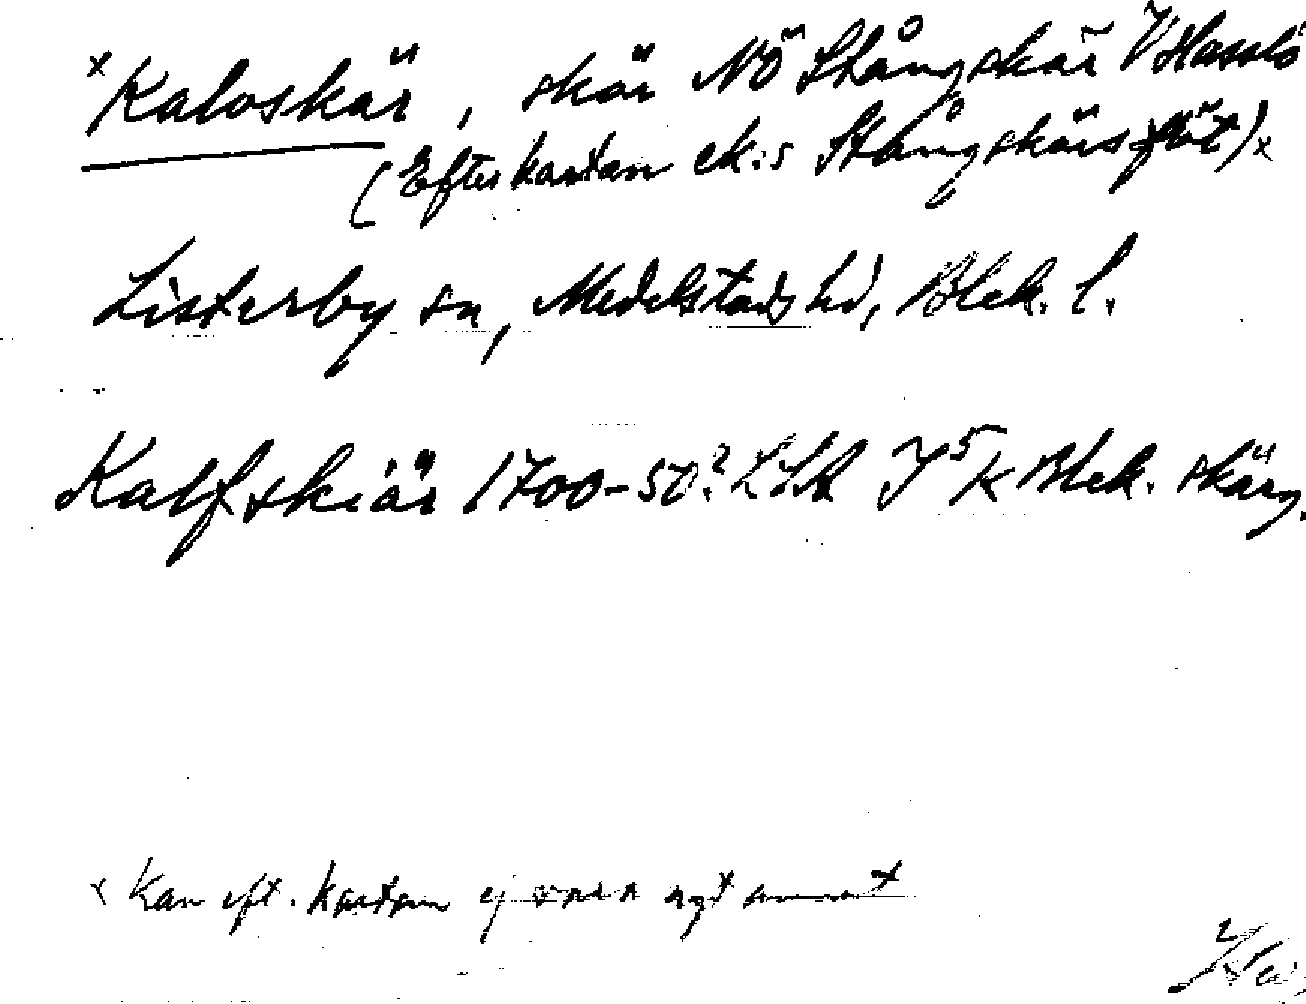 x Kalvskär, skär NÖ Stångskär V Hasslö
(Efter kartan ek:s Stångskärs flöt) x
Listerby sn, Medelstads hd, Blek. l.
Kalfskiär 1700-50? LSA J5 K Blek. skärg.
x Kan eft. kartan ej vara ngt annat